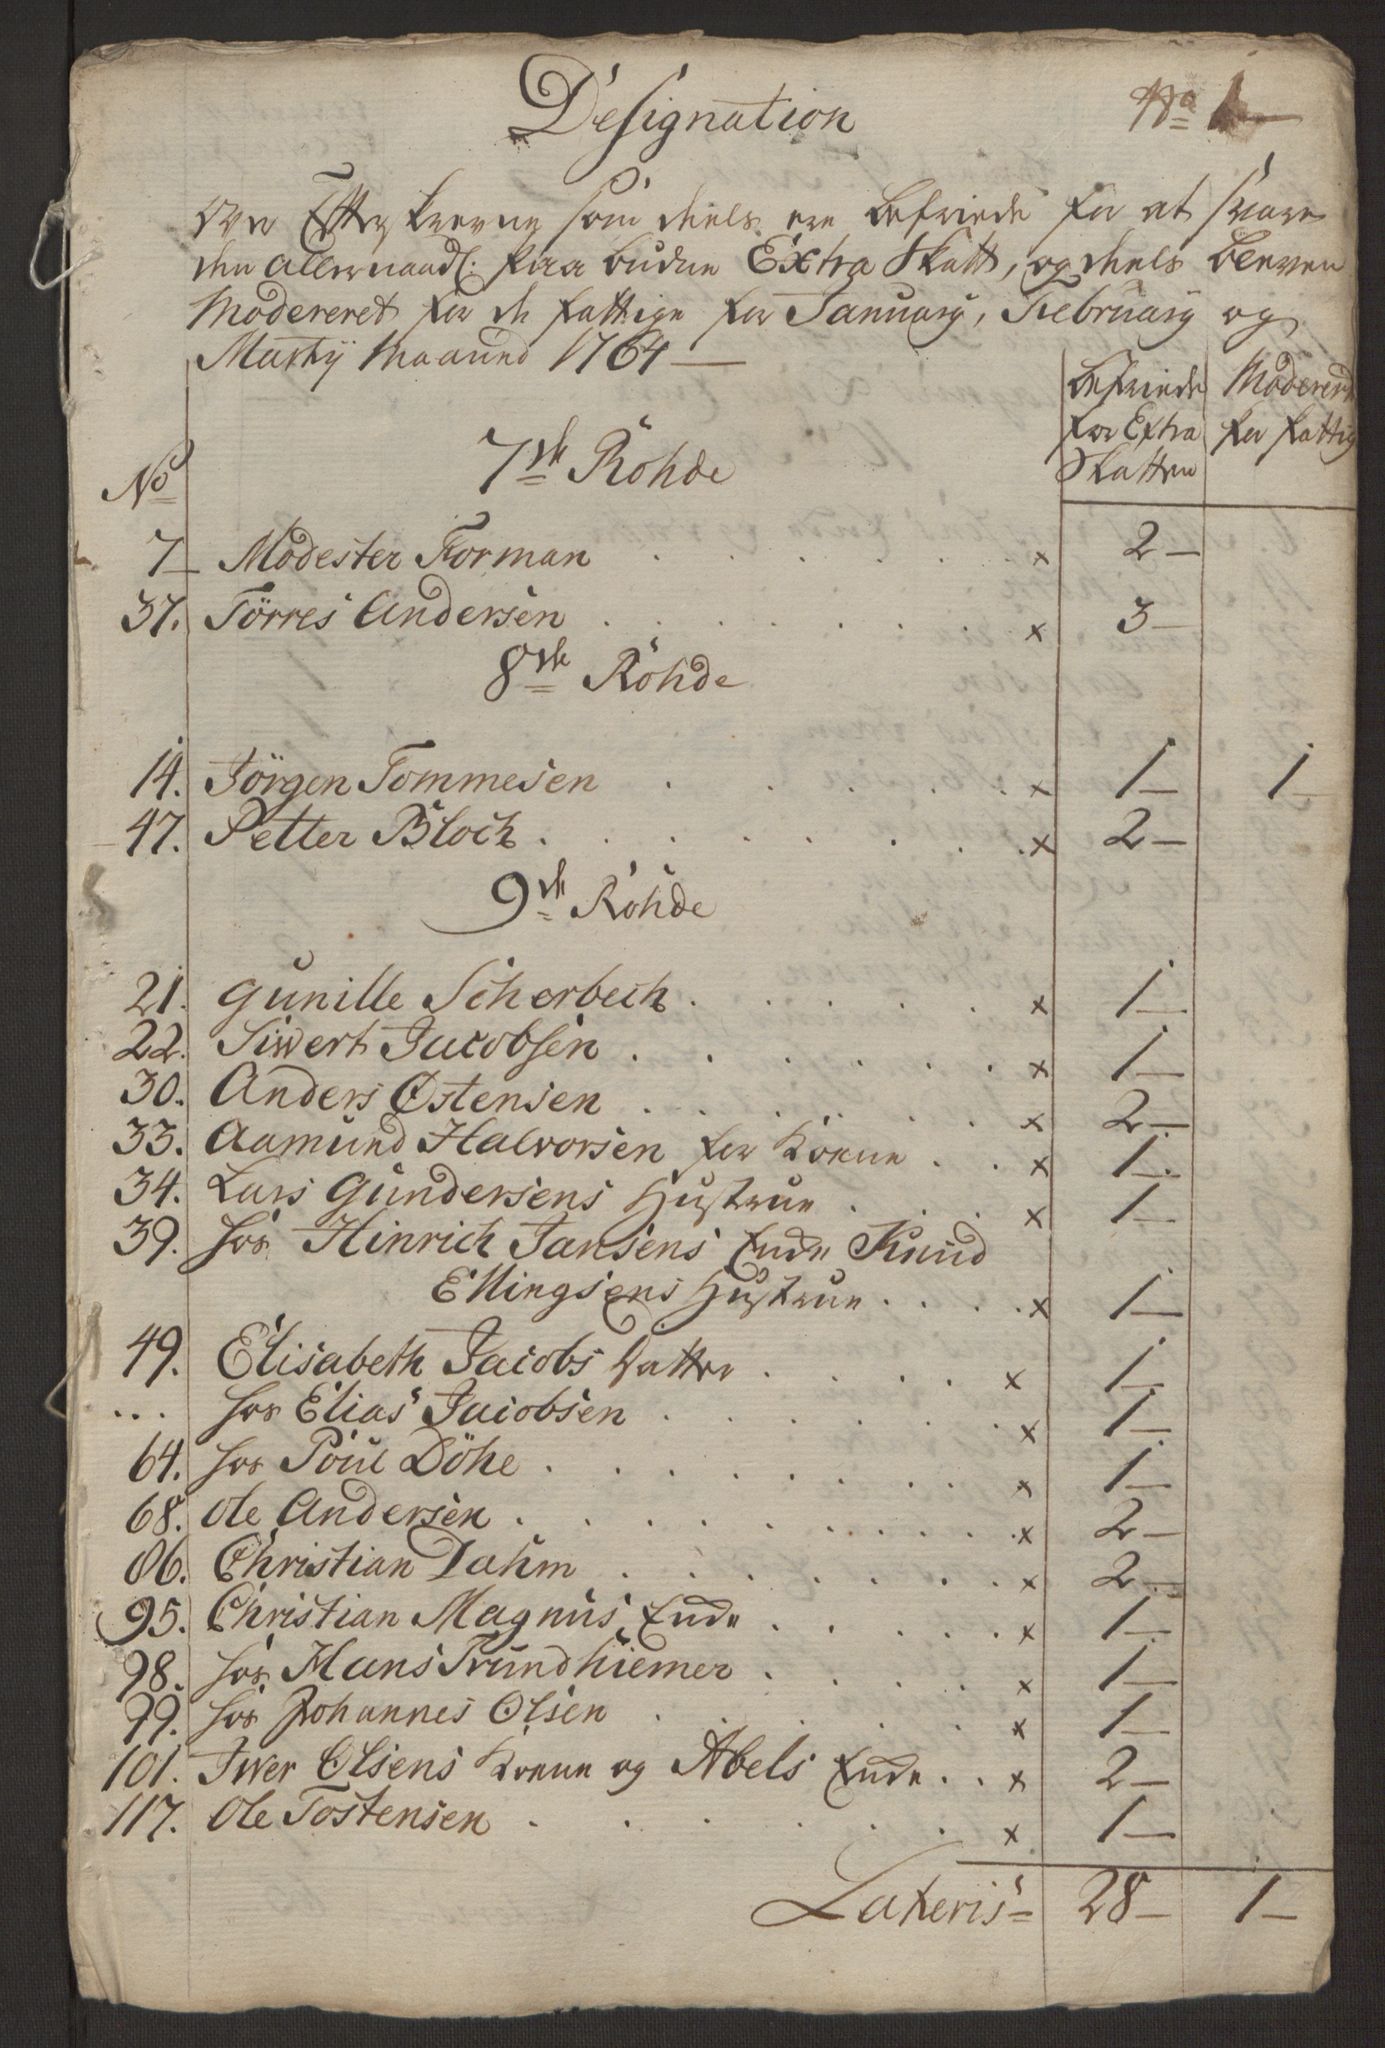 Designation
No 1
Over Efterskrevne som deels ere befriede for at svare
den allernaad: paabudne Extra Skatt, og deels bleven
Modereret for de fattige for January, February og
Martÿ Maaned 1764
Befriede for Extra Skatten
Modereret for fattig
No
7de Rohde
7 Modester Forman . . . . . x 2
37. Törres Andersen . . . . . x 3
8de Rohde
14. Jörgen Tommesen . . . . . x 1 1
47. Petter Bloch . . . . . x 2
9de Rohde
21. Gunille Scherbech . . . . . x 1
22. Siwert Jacobsen . . . . . x 1
30. Anders Østensen . . . . . x 2
33. Aamund Halvorsen for Konen . . x 1
34. Lars Gundersens Hustrue . . . x 1
39. hos Hinrich Jansens Enke Knud
Ellingsens Hustrue . . . . x 1
49. Elisabeth Jacobs Datter . . . . x 1
... hos Elias Jacobsen . . . . . x 1
64. hos Poul Döhe . . . . . x 1
68. Ole Andersen . . . . . x 2
86. Christian Dahm . . . . . x 2
95. Christian Magnus Enke . . . . . x 1
98. hos Hans Trundhiemer . . . . x 1
99. hos Johannes Olsen . . . . . x 1
101. Iwer Olsens Konen og Abels Enke . . x 2
117. Ole Tostensen . . . . . x 1
Lateris 28 1